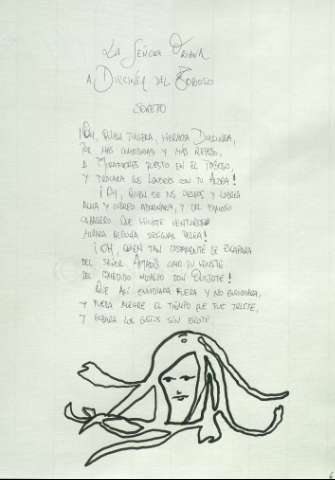 LA SEÑORA ORIANA
A DULCINEA DEL TOBOSO
SONETO
¡OH, QUIEN TUVIERA, HERMOSA DULCINEA,
POR MÁS COMODIDAD Y MÁS REPOSO,
A MIRAFLORES PUESTO EN EL TOBOSO,
Y TROCARA LOS LONDRES CON TU ALDEA!
¡OH, QUIEN DE TUS DESEOS Y LIBREA
ALMA Y CUERPO ADORNARA, Y DEL FAMOSO
CABALLERO QUE HICISTE VENTUROSO
MIRARA ALGUNA DESIGUAL PELEA!
¡OH, QUIEN TAN CASTAMENTE SE ESCAPARA
DEL SEÑOR AMADÍS COMO TU HICISTE
DEL COMEDIDO HIDALGO DON QUIJOTE!
QUE ASÍ ENVIDIADA FUERA Y NO ENVIDIARA,
Y FUERA ALEGRE EL TIEMPO QUE FUE TRISTE,
Y GOZARA LOS GUSTOS SIN ESCOTE.